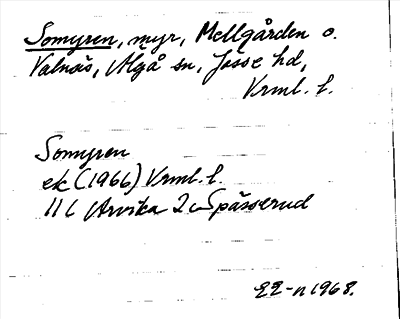 Somyren, myr, Mellgården o.
Valnäs, Älgå sn, Jösse hd,
Vrml. l.
Somyren
ek (1966) Vrml. l.
11 C Arvika 2 c Spässerud
22-n 1968.